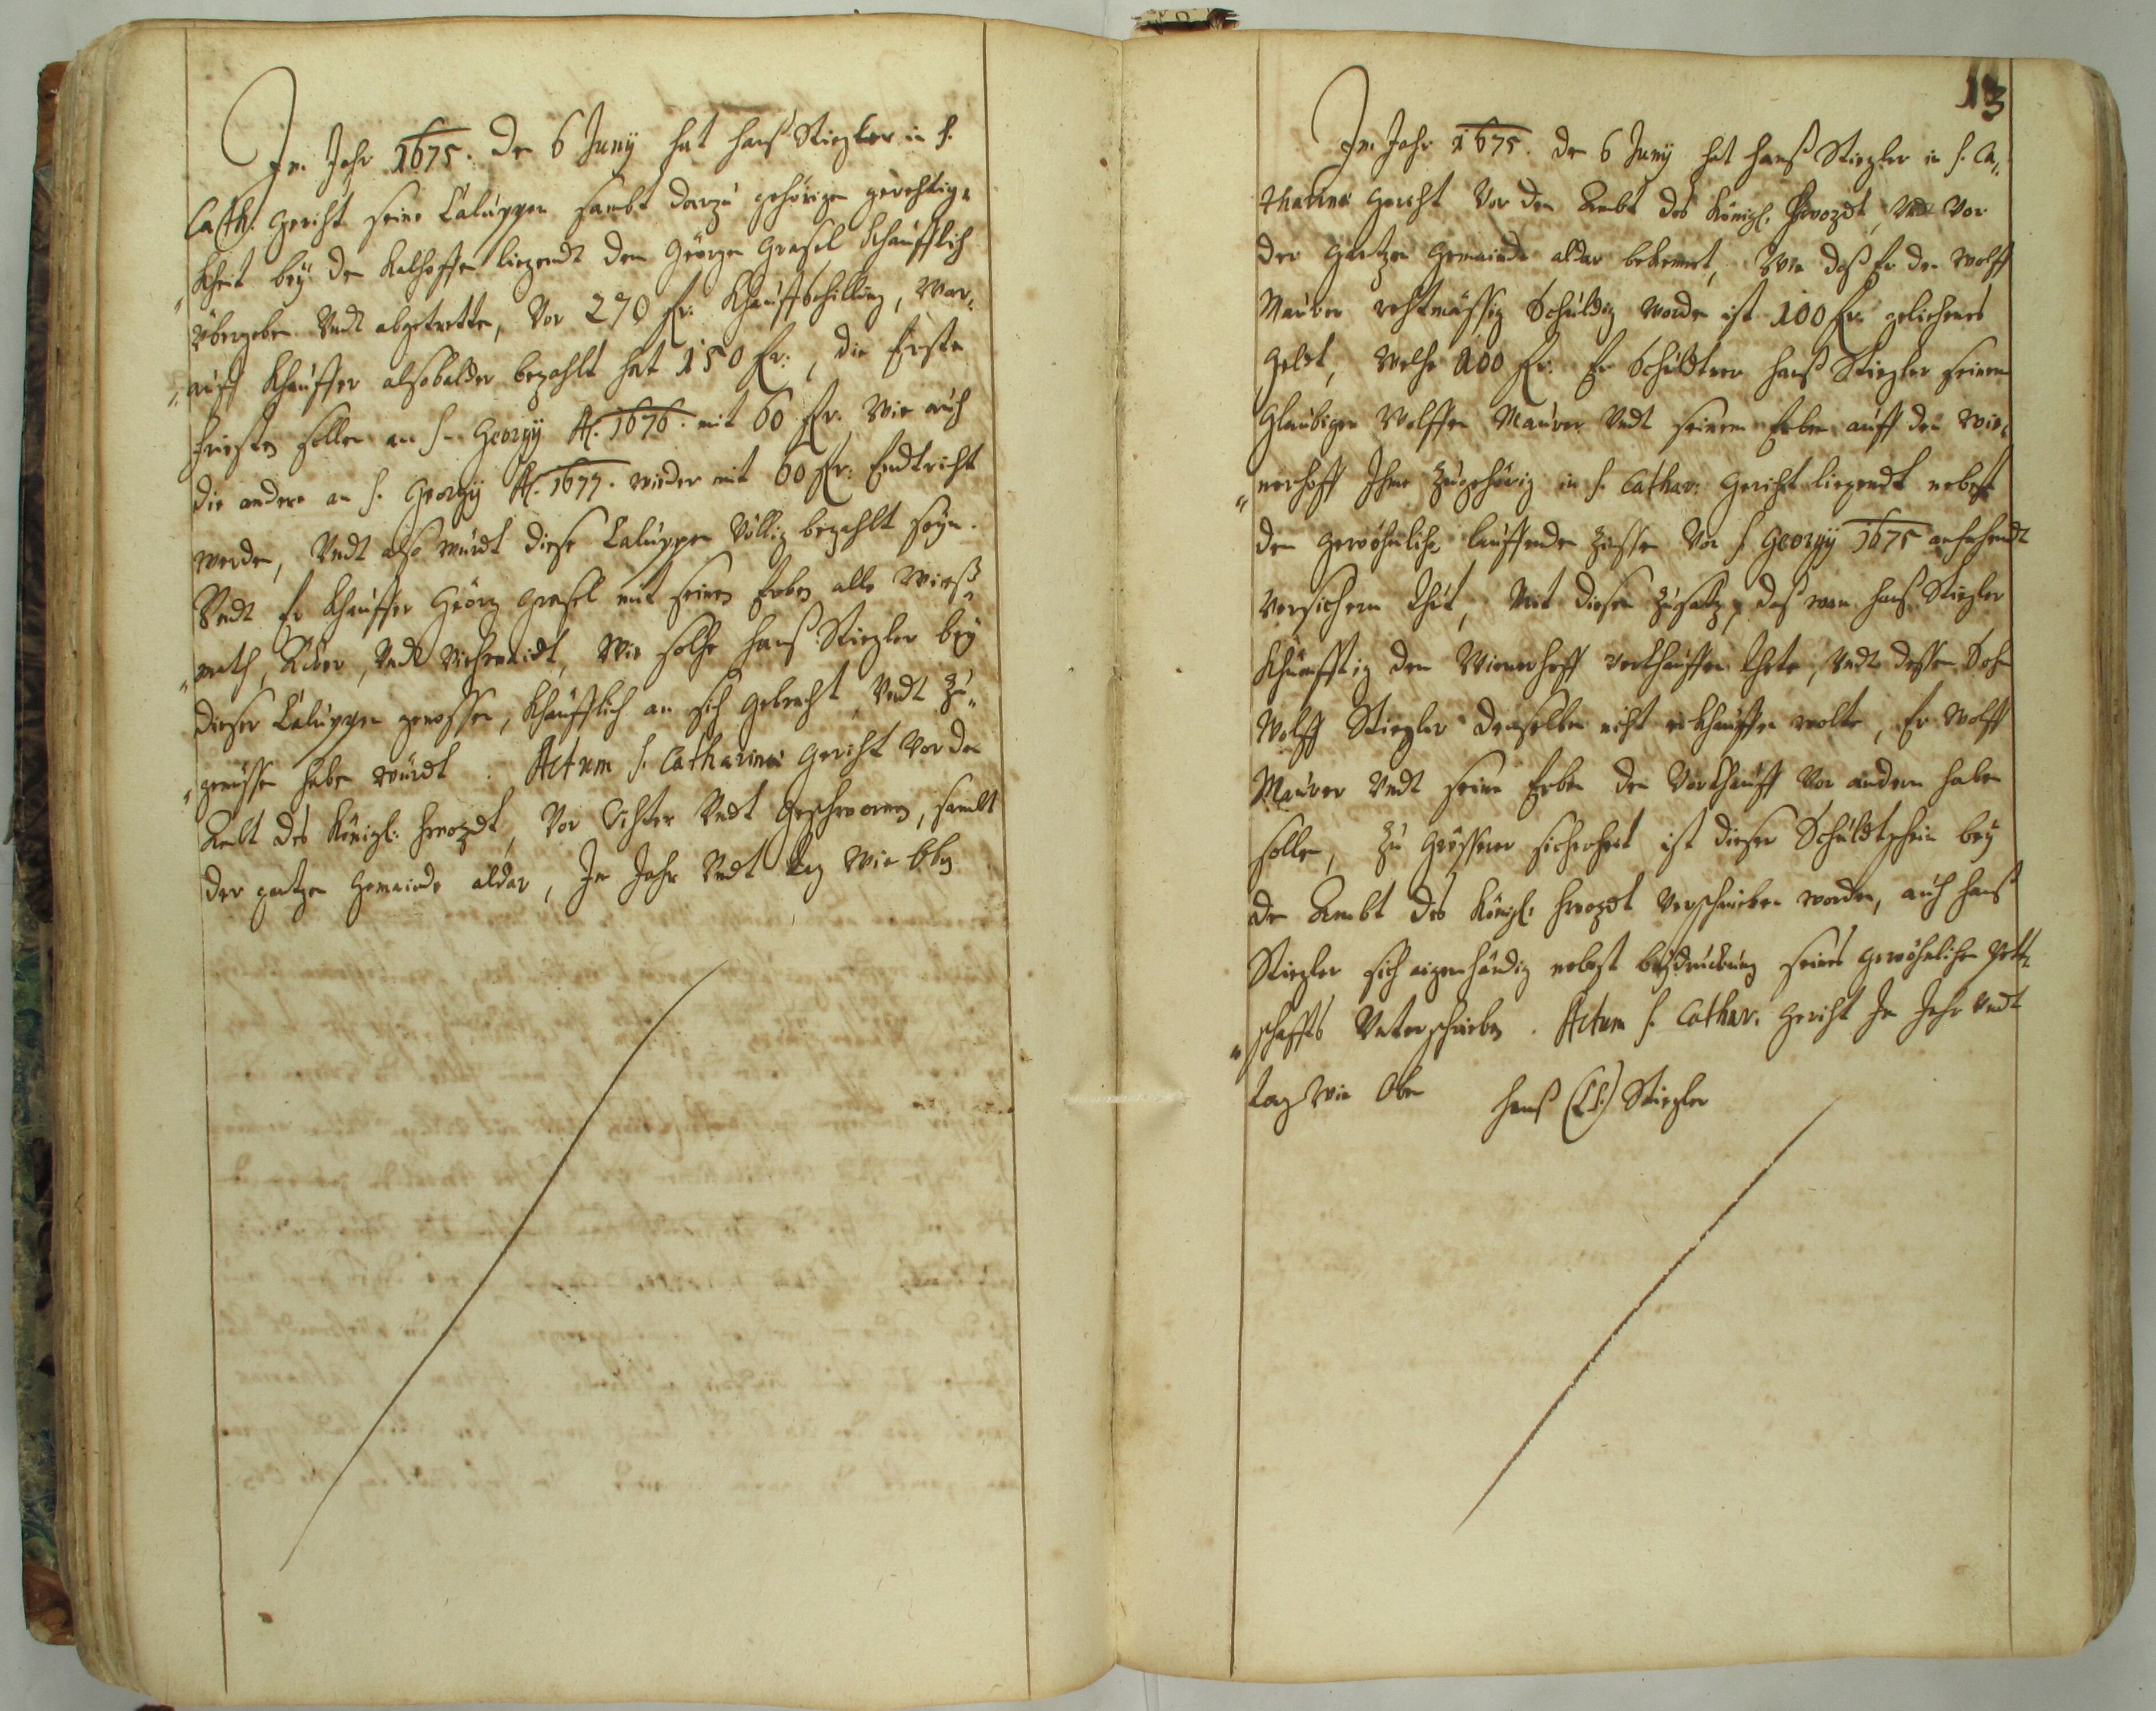 Im Jahr 1675. den 6 Juny hat Hanß Stiegler in S.
Cath. Gericht seine Caluppen sambt darzu gehörigen gerechtig„
„kheit bey den Kalhoffen liegendt dem Georgen Grasel Khaufflich
übergeben Undt abgetretten, Vor 270 fr: Khauffschilling, war„
„auff Khauffer alsobalden bezahlt hat 150 fr:, die Erste
fristen sollen an S. Georgÿ A. 1676. mit 60 fr. wie auch
die andere an S. Georgÿ A. 1677. wieder mit 60 fr: Endtricht
werden, Undt also würdt diese Caluppen Völlig bezahlt seyn.
Undt Er Khauffer Geörg Grasel mit seinen Erben alle Wieß„
„math, Äcker, Undt Viehwaidt, Wie solche Hanß Stiegler bey
dieser Caluppen genossen, Khaufflich an sich gebracht, Undt Zu„
„geniessen haben würdt. Actum S. Catharinæ Gericht Vor den
Ambt des Königl: Hwozdt, Vor Richter Undt Geschwornen, sambt
der gantzen Gemainde aldar, Im Jahr Undt Tag wie oben
13
Im Jahr 1675. den 6 Juny hat Hanß Stiegler in S. Ca„
tharinæ Gericht Vor den Ambt des Königl. Hwozdt, Undt Vor
der Gantzen Gemainde aldar bekennet, Wie daß Er den Wolff
Maurer rechtmässig Schuldig worden ist 100 fr. geliehenes
Geldt, Welche 100 fr: Er Schuldtner Hanß Stiegler seinem
Glaubigen Wolffen Maurer Undt seinem Erben auff den Wie„
„nerhoff Ihme Zugehörig in S. Cathar: Gericht liegendt nebest
den gewöhnlichen lauffenden Zinssen Von S. Georgÿ 1675 anfahendt
Versichern thut, Mit diesen Zusatz, daß wan Hanß Stiegler
Khünfftig den Wienerhoff verkhauffen thete, Undt dessen Sohn
Wolff Stiegler denselben nicht erkhauffen wolte, Er Wolff
Maurer Undt seine Erben den Vorkhauff Vor andern haben
solle, Zu Grösserer sicherheit ist dieser Schuldtschein bey
den Ambt des Königl: Hwozdt Verschrieben worden, auch Hanß
Stiegler sich aigenhändig nebest beydruckung seines gewöhnlichen Pett„
„schaffts Unterschrieben. Actum S. Cathar. Gericht Im Jahr Undt
tag wie Oben Hanß (L.S.) Stiegler